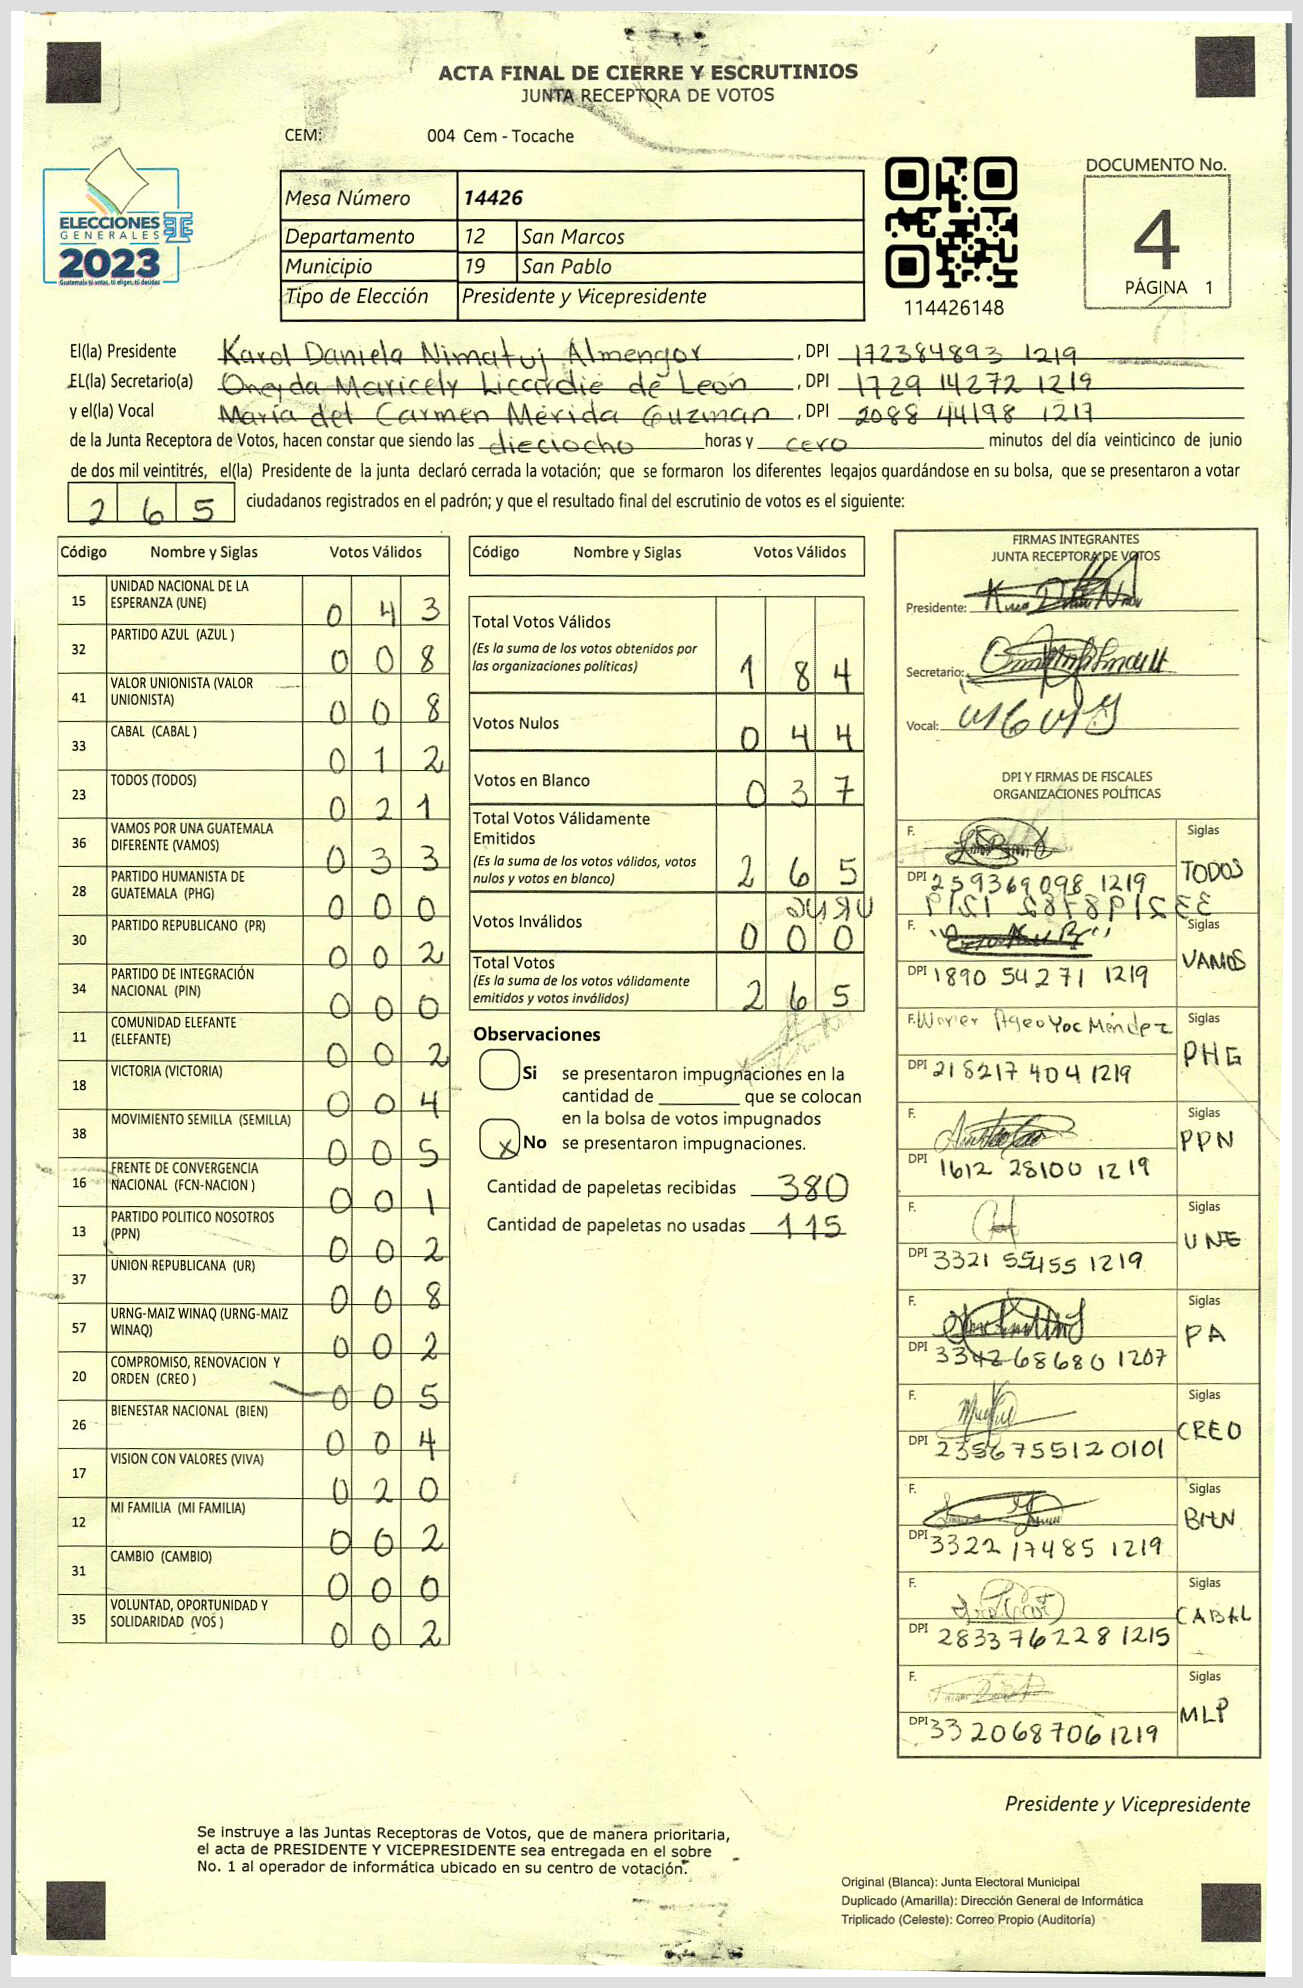 ACTA FINAL DE CIERRE Y ESCRUTINIOS
JUNTA RECEPTORA DE VOTOS
CEM: 004 Cem - Tocache
ELECCIONES
GENERALES
2023
Guatemala tú votas, tú eliges, tú decides
Mesa Número 14426
Departamento 12 San Marcos
Municipio 19 San Pablo
Tipo de Elección Presidente y Vicepresidente
114426148
DOCUMENTO No.
4
PÁGINA 1
El(la) Presidente Karol Daniela Nimatuj Almengor, DPI 172384893 1219
EL(la) Secretario(a) Oneyda Maricely Liccardie de Leon, DPI 1729 14272 1219
y el(la) Vocal María del Carmen Mérida Guzman, DPI 2088 44198 1217
de la Junta Receptora de Votos, hacen constar que siendo las dieciocho horas y cero minutos del día veinticinco de junio
de dos mil veintitrés, el(la) Presidente de la junta declaró cerrada la votación; que se formaron los diferentes legajos guardándose en su bolsa, que se presentaron a votar
265 ciudadanos registrados en el padrón; y que el resultado final del escrutinio de votos es el siguiente:
Código Nombre y Siglas Votos Válidos
15 UNIDAD NACIONAL DE LA ESPERANZA (UNE) 043
32 PARTIDO AZUL (AZUL ) 008
41 VALOR UNIONISTA (VALOR UNIONISTA) 008
33 CABAL (CABAL ) 012
23 TODOS (TODOS) 021
36 VAMOS POR UNA GUATEMALA DIFERENTE (VAMOS) 033
28 PARTIDO HUMANISTA DE GUATEMALA (PHG) 000
30 PARTIDO REPUBLICANO (PR) 002
34 PARTIDO DE INTEGRACIÓN NACIONAL (PIN) 000
11 COMUNIDAD ELEFANTE (ELEFANTE) 002
18 VICTORIA (VICTORIA) 004
38 MOVIMIENTO SEMILLA (SEMILLA) 005
16 FRENTE DE CONVERGENCIA NACIONAL (FCN-NACION ) 001
13 PARTIDO POLITICO NOSOTROS (PPN) 002
37 UNION REPUBLICANA (UR) 008
57 URNG-MAIZ WINAQ (URNG-MAIZ WINAQ) 002
20 COMPROMISO, RENOVACION Y ORDEN (CREO ) 005
26 BIENESTAR NACIONAL (BIEN) 004
17 VISION CON VALORES (VIVA) 020
12 MI FAMILIA (MI FAMILIA) 002
31 CAMBIO (CAMBIO) 000
35 VOLUNTAD, OPORTUNIDAD Y SOLIDARIDAD (VOS ) 002
Código Nombre y Siglas Votos Válidos
Total Votos Válidos
(Es la suma de los votos obtenidos por
las organizaciones políticas) 184
Votos Nulos 044
Votos en Blanco 037
Total Votos Válidamente
Emitidos
(Es la suma de los votos válidos, votos
nulos y votos en blanco) 265
Votos Inválidos 000
Total Votos
(Es la suma de los votos válidamente
emitidos y votos inválidos) 265
Observaciones
Si se presentaron impugnaciones en la
cantidad de ________ que se colocan
en la bolsa de votos impugnados
x No se presentaron impugnaciones.
Cantidad de papeletas recibidas 380
Cantidad de papeletas no usadas 115
FIRMAS INTEGRANTES
JUNTA RECEPTORA DE VOTOS
Presidente:
Secretario:
Vocal:
DPI Y FIRMAS DE FISCALES
ORGANIZACIONES POLÍTICAS
F. Siglas
DPI 259369098 1219 TODOS
F. Siglas
DPI 1890 54271 1219 VAMOS
F. Yoc Méndez Siglas
DPI 218217404 1219 PHG
F. Siglas
DPI 1612 28100 1219 PPN
F. Siglas
DPI 3321 55455 1219 UNE
F. Siglas
DPI 334268680 1207 PA
F. Siglas
DPI 2356755120101 CREO
F. Siglas
DPI 3322 17485 1219 BIEN
F. Siglas
DPI 2833762281215 CABAL
F. Siglas
DPI 3320687061219 MLP
Presidente y Vicepresidente
Se instruye a las Juntas Receptoras de Votos, que de manera prioritaria,
el acta de PRESIDENTE Y VICEPRESIDENTE sea entregada en el sobre
No. 1 al operador de informática ubicado en su centro de votación.
Original (Blanca): Junta Electoral Municipal
Duplicado (Amarilla): Dirección General de Informática
Triplicado (Celeste): Correo Propio (Auditoría)